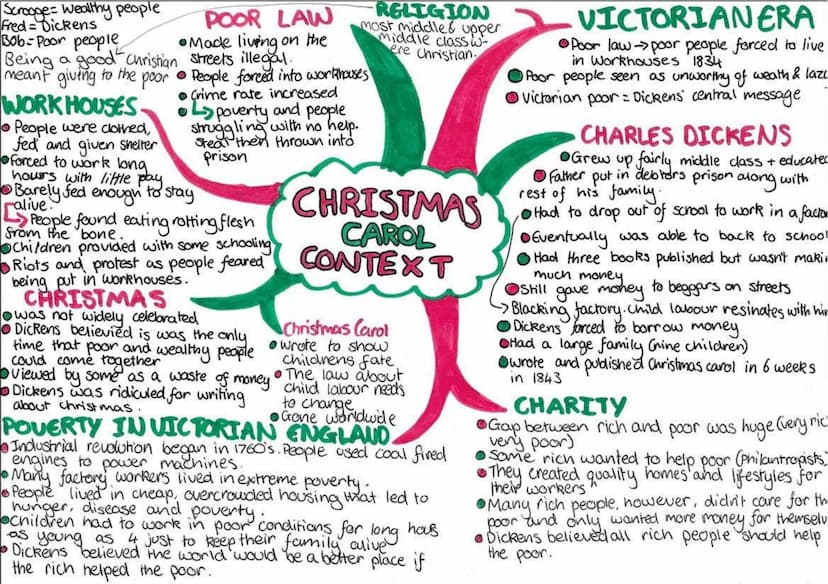 Scrooge = Wealthy people
Fred = Dickens
Bob = Poor people
Being a good Christian
meant giving to the poor
POOR LAW
Made living on the
streets illegal.
People forced into workhouses
Crime rate increased
poverty and people
struggling with no help.
steal then thrown into
prison
RELIGION
most middle & upper
middle class w-
ere Christian.
VICTORIAN ERA
Poor law → poor people forced to live
in workhouses 1834
Poor people seen as unworthy of wealth &
Victorian poor = Dickens' central message
WORKHOUSES
People were clothed,
fed and given shelter
Forced to work long
hours with little pay
Barely fed enough to stay
alive.
People found eating rotting flesh
from the bone.
Children provided with some schooling
Riots and protest as people feared
being put in workhouses.
CHRISTMAS CAROL CONTEXT
CHARLES DICKENS
Grew up fairly middle class + educated
Father put in debtors prison along with
rest of his family.
Had to drop out of school to work in a
Eventually was able to back to school
Had three books published but wasn't
much money
Still gave money to beggars on streets
Blacking factory. Child labour resinates with
Dickens forced to borrow money
Had a large family (nine children)
Wrote and published Christmas carol in 6 weeks
in 1843
CHRISTMAS
Was not widely celebrated
Dickens believied is was the only
time that poor and wealthy people
could come together
Viewed by some as a waste of money
Dickens was ridiculed for writing
about christmas.
Christmas Carol
Wrote to show
childrens fate
The law about
child labour needs
to change
Gone worldwide
POVERTY IN VICTORIAN ENGLAND
Industrial revolution began in 1760's. People used coal fired
engines to power machines.
Many factory workers lived in extreme poverty.
People lived in cheap, overcrowded housing that led to
hunger, disease and poverty.
Children had to work in poor conditions for long hours
as young as 4 just to keep their family alive
Dickens believed the world would be a better place if
the rich helped the poor.
CHARITY
Gap between rich and poor was huge (very rich
very poor)
Some rich wanted to help poor
They created quality homes and lifestyles for
their workers
Many rich people, however, didn't care for the
poor and only wanted more money for
Dickens believed all rich people should help
the poor.